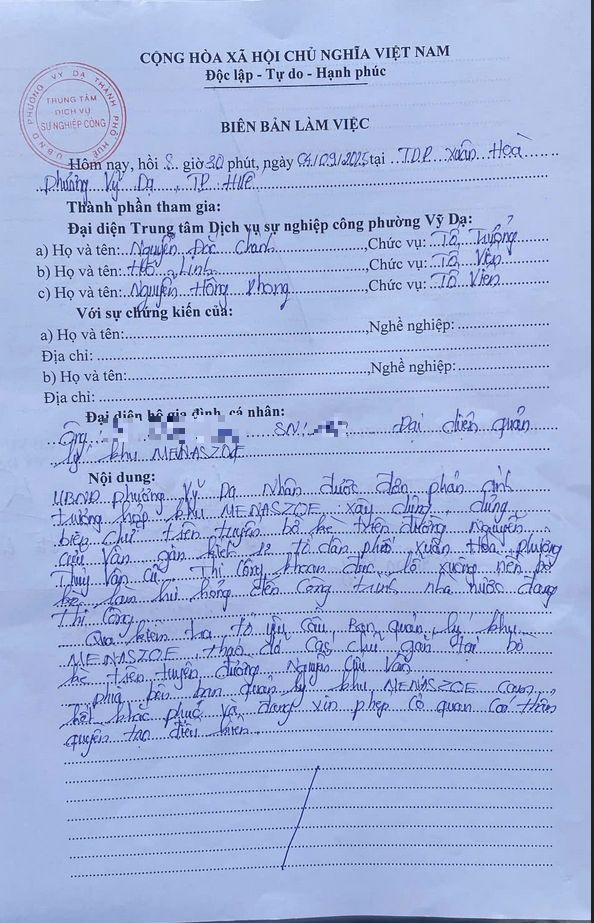 CỘNG HÒA XÃ HỘI CHỦ NGHĨA VIỆT NAM
Độc lập - Tự do - Hạnh phúc
U.B.N.D PHƯỜNG VỸ DẠ THÀNH PHỐ HUẾ
TRUNG TÂM
DỊCH VỤ
SỰ NGHIỆP CÔNG
BIÊN BẢN LÀM VIỆC
Hôm nay, hồi 8 giờ 30 phút, ngày 04/09/2025 tại T.D.P. Xuân Hoà
phường Vỹ Dạ, TP. HUẾ
Thành phần tham gia:
Đại diện Trung tâm Dịch vụ sự nghiệp công phường Vỹ Dạ:
a) Họ và tên: Nguyễn Chức vụ: Tổ Trưởng
b) Họ và tên: Hồ Linh, Chức vụ: Tổ Viên
c) Họ và tên: Nguyễn Hồng Phong, Chức vụ: Tổ Viên
Với sự chứng kiến của:
a) Họ và tên:, Nghề nghiệp:
Địa chỉ:
b) Họ và tên:, Nghề nghiệp:
Địa chỉ:
Đại diện hộ gia đình, cá nhân:
Ông: SN: Đại diện quản
lý khu MENASZOE
Nội dung:
UBND phường Vỹ Dạ nhận được đơn phản ánh
trường hợp khu MENASZOE xây dựng, dựng
biển chữ trên tuyến bỏ hè trên đường Nguyễn
Cửu Vân gần tổ dân phố Xuân Hòa, phường
Thủy Vân cũ. Thi công khoan đục, lỗ xuống nền bỏ
hè làm hư hỏng đến công trình nhà nước đang
thi công.
Qua kiểm tra, tổ yêu cầu, Ban quản lý khu
MENASZOE tháo dỡ các chữ gắn tại bỏ
hè trên tuyến đường Nguyễn Cửu Vân
phía bên ban quản lý khu MENASZOE cam
kết khắc phục và đang xin phép cơ quan có thẩm
quyền tạo điều kiện.